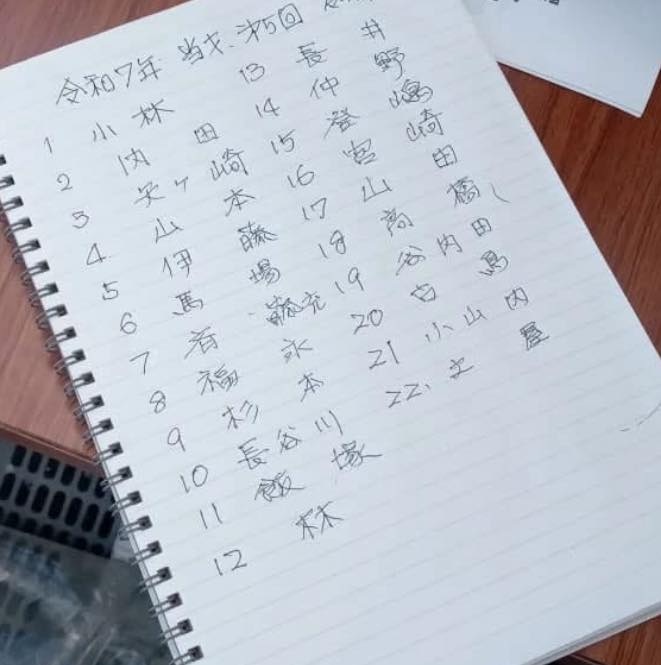 令和7年 当才、㐧5回
1 小林
2 内田
3 矢ヶ崎
4 山本
5 伊藤
6 馬場
7 斉藤充
8 福永
9 杉本
10 長谷川
11 飯塚
12 林
13 長井
14 仲野
15 登嶋
16 宮崎
17 山田
18 高橋
19 谷内田
20 白鳥
21 小山内
22、屋